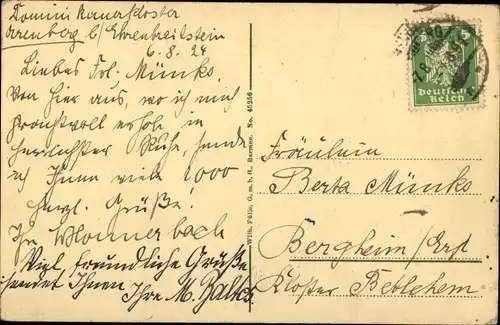 Arenberg b/ Ehrenbreitstein
6.8.24
Liebes Frl. Münks,
Von hier aus, wo ich mich
prachtvoll erhole in
herrlichster Ruhe, sende
ich Ihnen viele 1000
herzl. Grüße!
Viel freundliche Grüße
sendet Ihnen
Ihre M.
Wilh. Fülle, G. m. b. H., Barmen. No. 45256
Deutsches
Reich
Fräulein
Berta Münks
Bergheim/Erft
Kloster Bethlehem